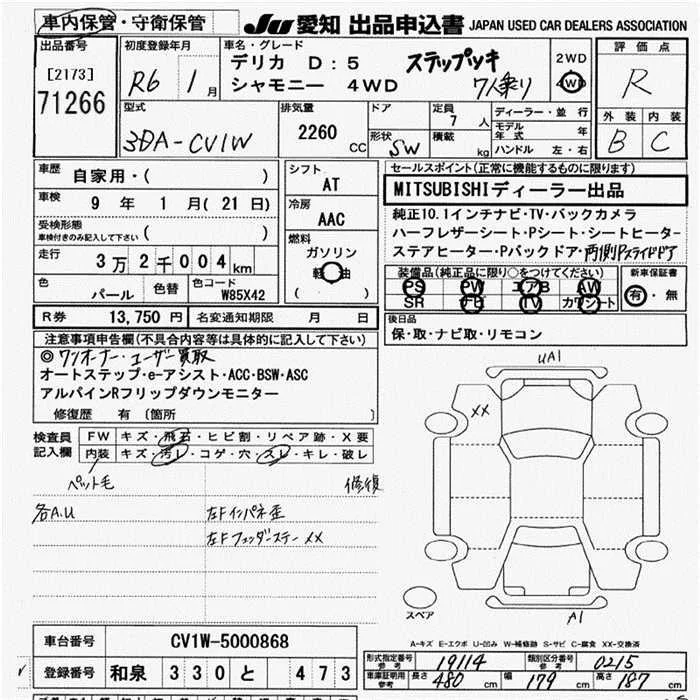 車内保管・守衛保管 JU 愛知 出品申込書 JAPAN USED CAR DEALERS ASSOCIATION
出品番号 [2173] 71266
初度登録年月 R6 1月
車名・グレード デリカ D:5 ステップツキ
シャモニー 4WD 7人乗り
2WD 4WD
評価点 R
型式 3DA-CV1W
排気量 2260 CC
ドア 形状 SW
定員 7 人 積載 kg
ディーラー・並行
モデル年式 年
ハンドル 左・右
外装 内装
B C
車歴 自家用・( )
車検 9 年 1 月(21 日)
受検形態 車検付きのみ記入して下さい ( )
走行 3万2千004km
色 パール 色替 色コード W85X42
シフト AT
冷房 AAC
燃料 ガソリン
軽油
( )
R券 13,750 円 名変通知期限 月 日
セールスポイント(正常に機能するものに限ります)
MITSUBISHIディーラー出品
純正10.1インチナビ・TV・バックカメラ
ハーフレザーシート・Pシート・シートヒーター
ステアヒーター・Pバックドア・両側Pスライドドア
装備品(純正品に限り○をつけてください)
PS PW エアB AW
SR ナビ TV カワシート
新車保証書
有・無
後日品
保・取・ナビ取・リモコン
注意事項申告欄(不具合内容等は具体的に記入して下さい)
◎ワンオーナー・ユーザー買取
オートステップ・e-アシスト・ACC・BSW・ASC
アルパインRフリップダウンモニター
修復歴 有 〔箇所 〕
検査員記入欄 FW キズ・飛石・ヒビ割・リペア跡・X要
内装 キズ・汚レ・コゲ・穴・スレ・キレ・破レ
ペット毛 修復
各A.U 左Fインパネ歪
左Fフェンダーステー XX
UA1
XX
スペア
A1
A-キズ E-エクボ U-凹み W-補修跡 S-サビ C-腐食 XX-交換済
車台番号 CV1W-5000868
登録番号 和泉 330 と 473
形式指定番号 参考 19114 類別区分番号 参考 0215
車庫証明用 参考 長さ 480 cm 幅 179 cm 高さ 187 cm